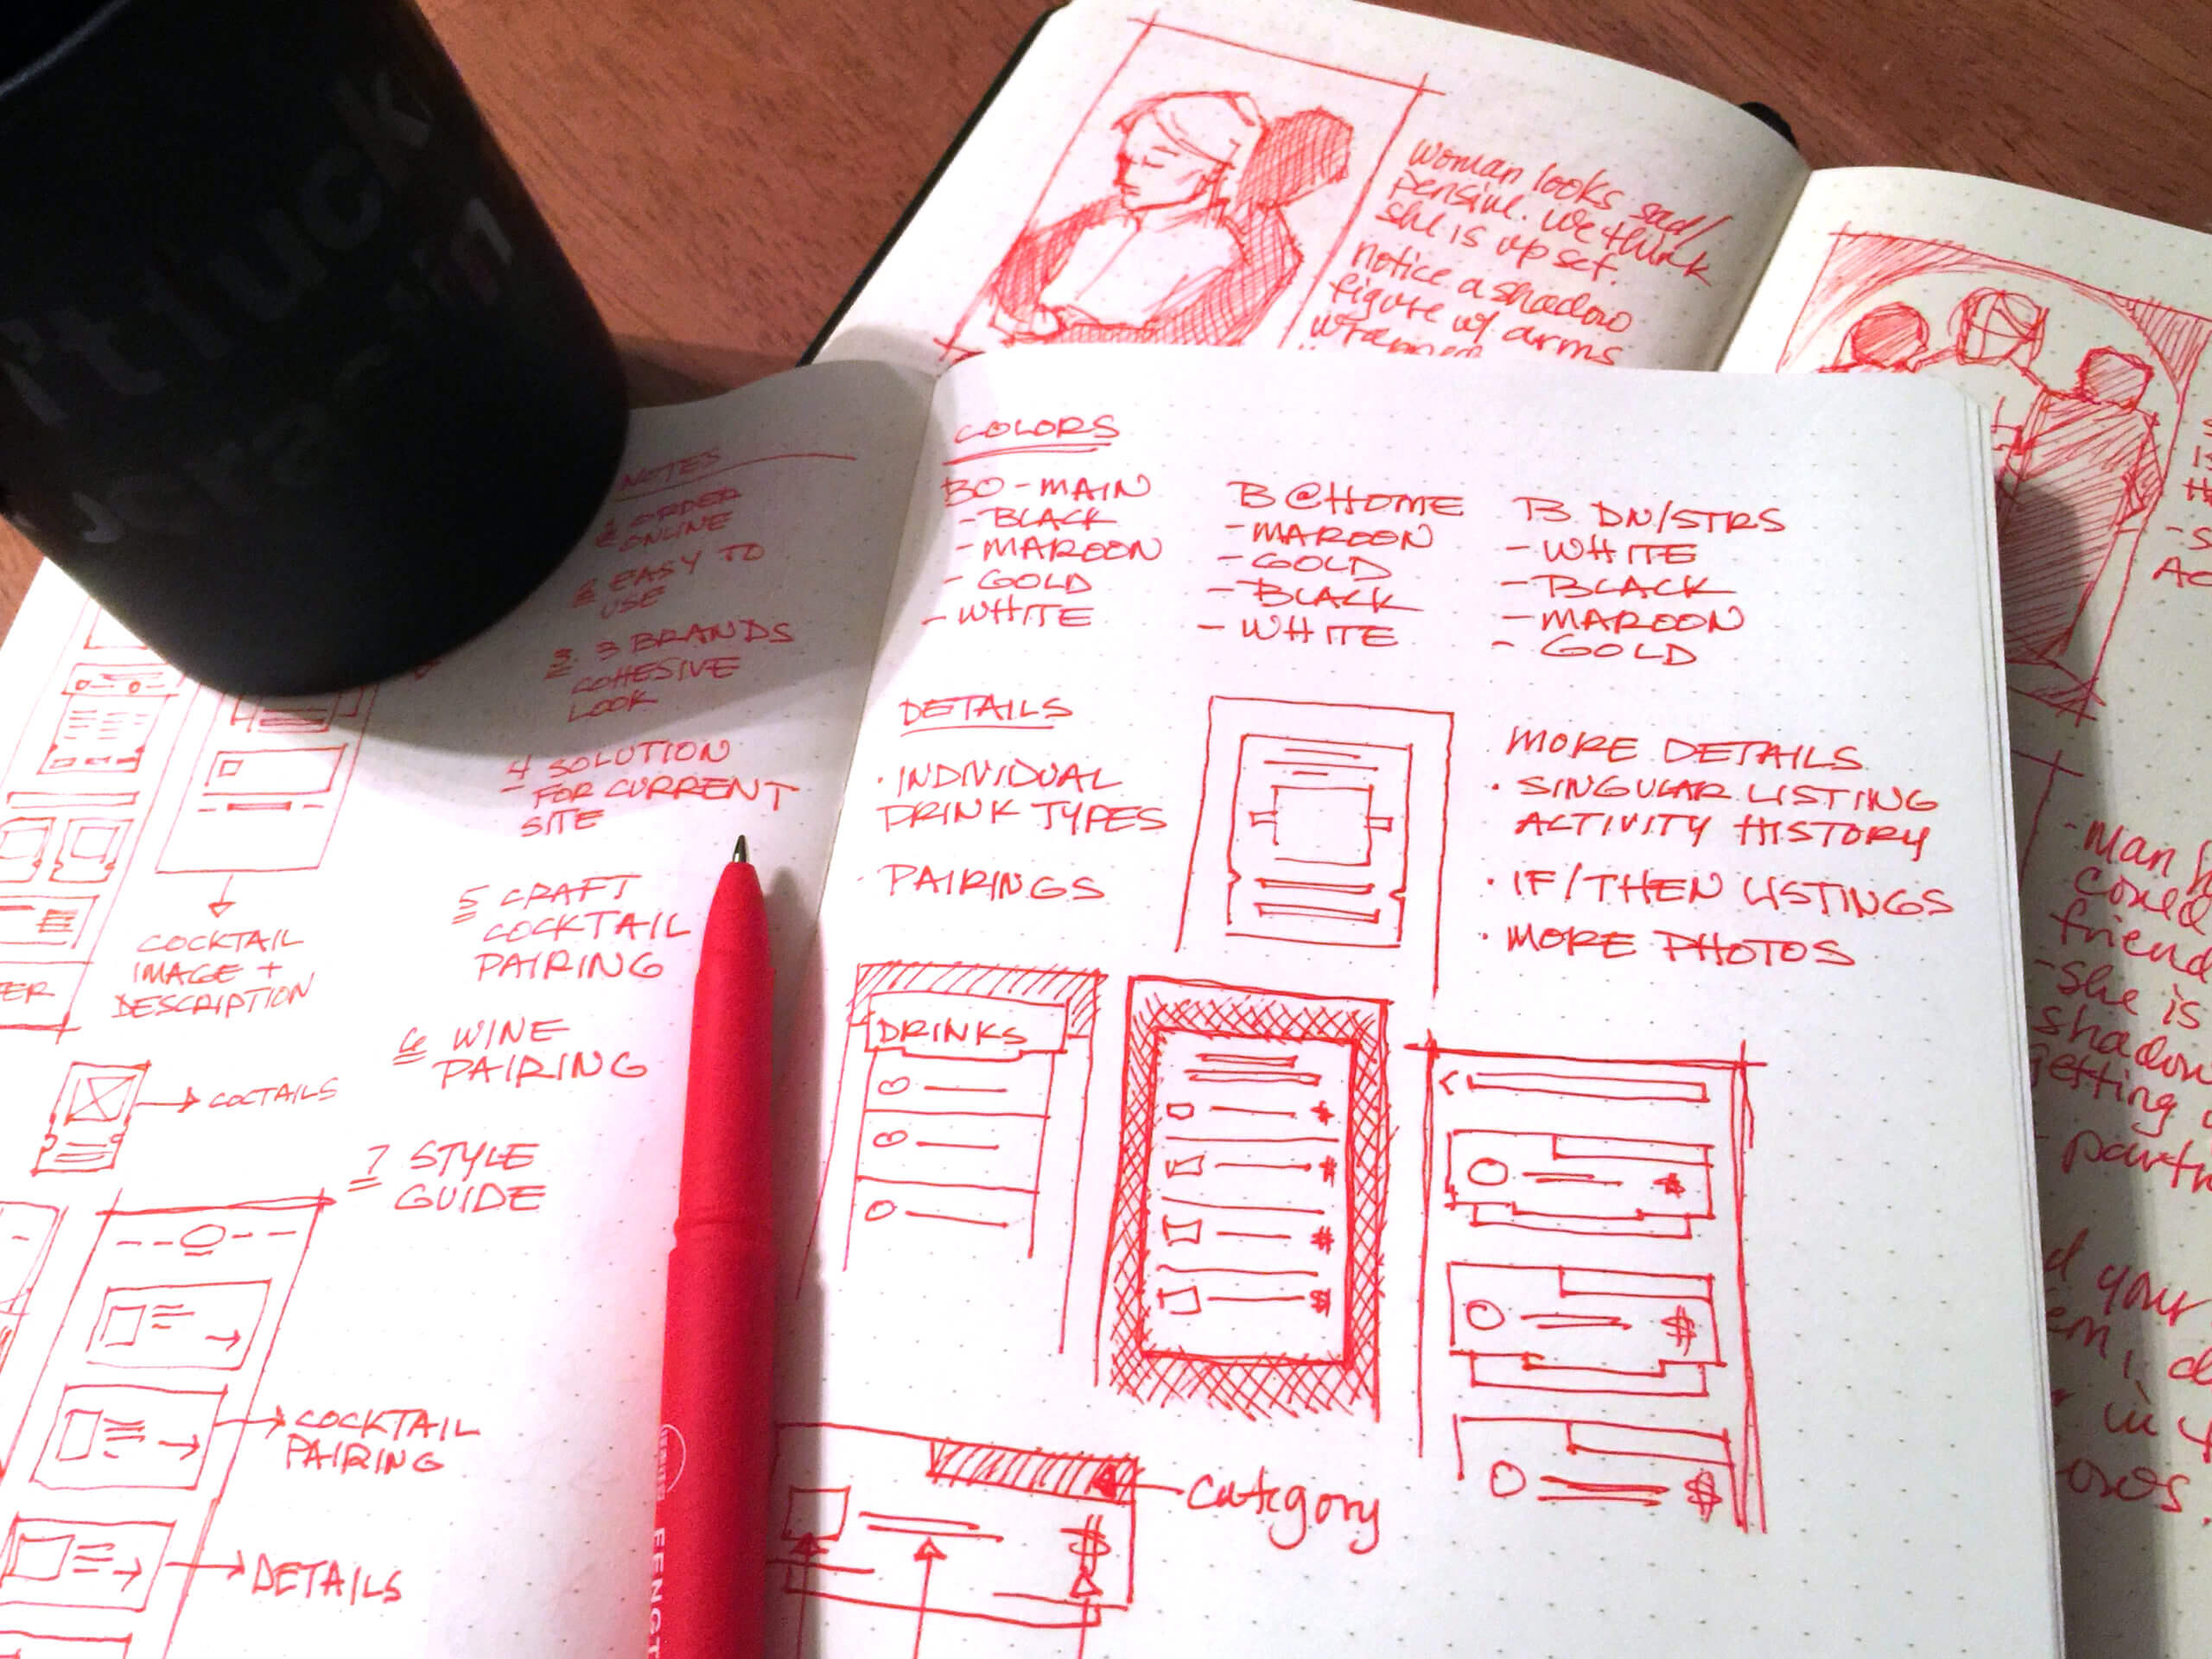 woman looks sad/
pensive. we think
she is upset.
notice a shadow
figure w/ arms
NOTES
1 ORDER
ONLINE
2 EASY TO
USE
3. 3 BRANDS
COHESIVE
LOOK
4 SOLUTION
FOR CURRENT
SITE
5 CRAFT
COCKTAIL
PAIRING
6 WINE
PAIRING
7 STYLE
GUIDE
COCKTAIL
IMAGE +
DESCRIPTION
COCTAILS
COCKTAIL
PAIRING
DETAILS
COLORS
BO-MAIN
- BLACK
- MAROON
- GOLD
- WHITE
B@HOME
- MAROON
- GOLD
- BLACK
- WHITE
B DN/STRS
- WHITE
- BLACK
- MAROON
- GOLD
DETAILS
· INDIVIDUAL
DRINK TYPES
· PAIRINGS
MORE DETAILS
· SINGULAR LISTING
ACTIVITY HISTORY
· IF/THEN LISTINGS
· MORE PHOTOS
DRINKS
$
$
$
$
$
$
$
$
Category
- Man
friend
- She is
shadow
getting
your
in